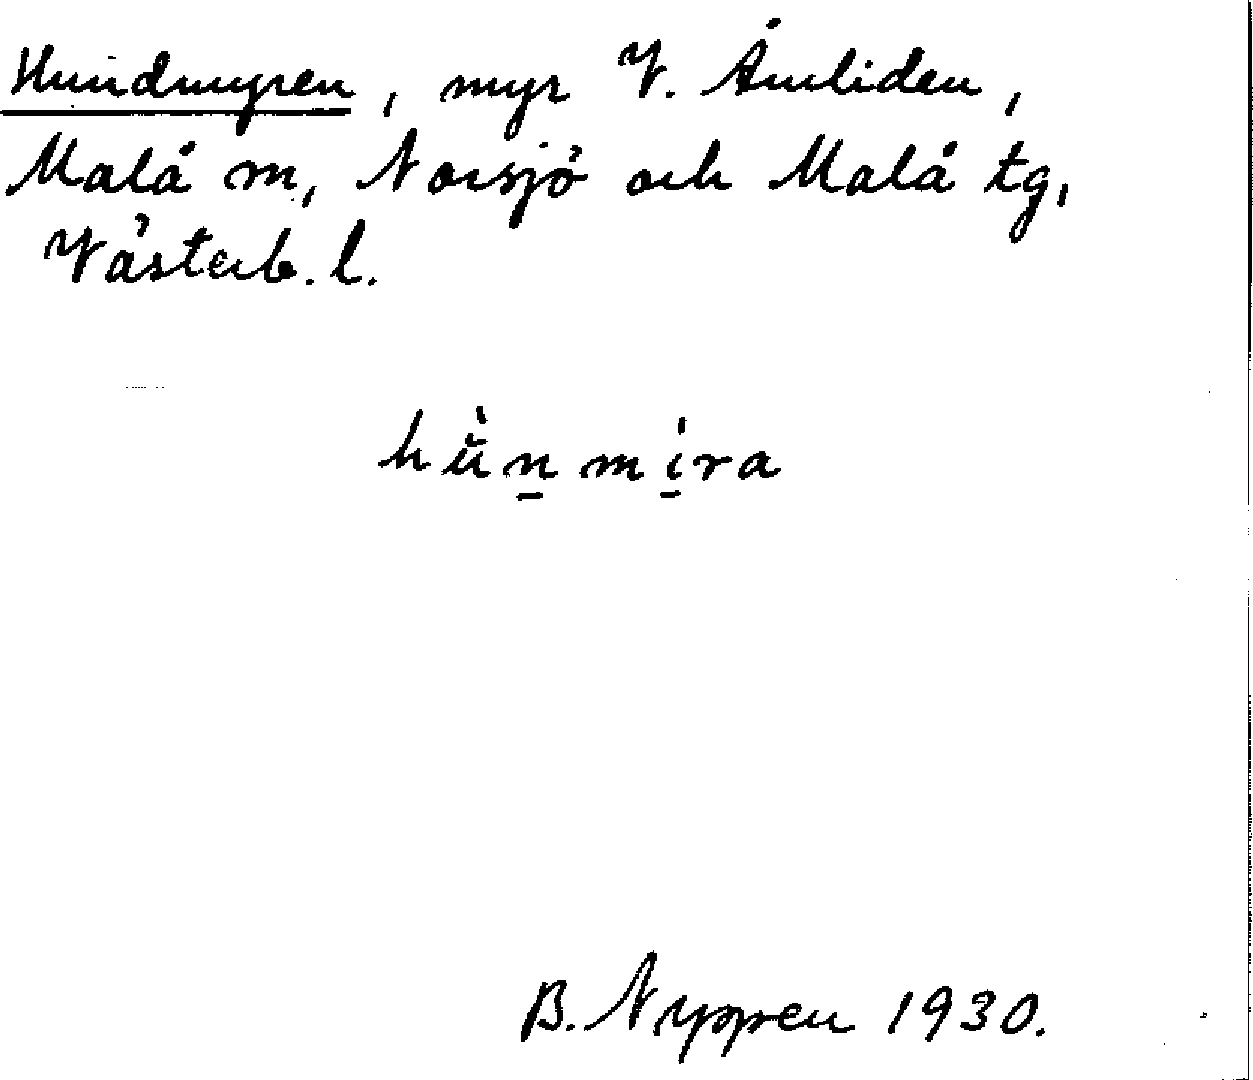 Hundmyren, myr V. Åmliden,
Malå m, Norsjö och Malå tg,
Västerb. l.
hu᷈̀n̠mí̠ra
B. Nyppen 1930.